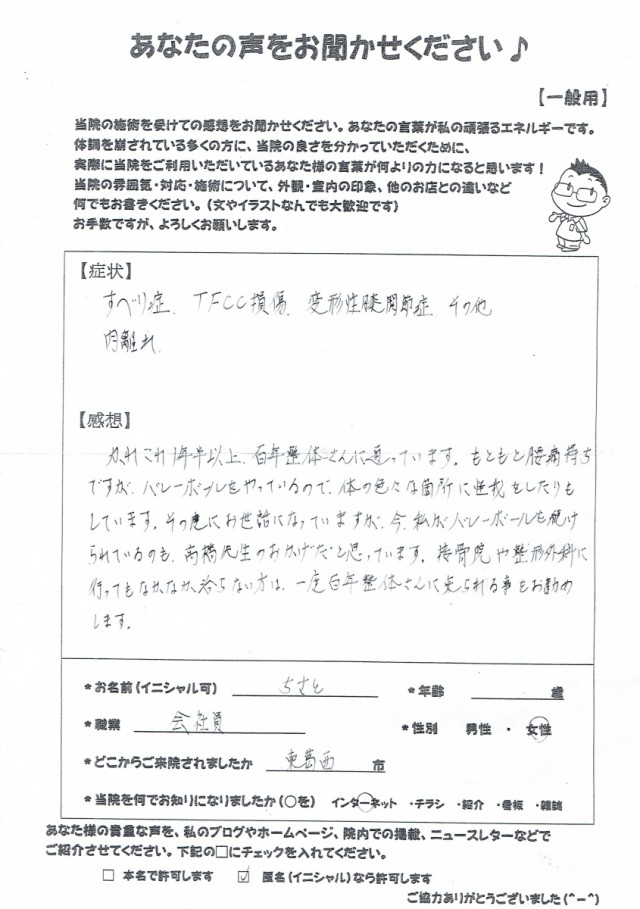 あなたの声をお聞かせください♪
【一般用】
当院の施術を受けての感想をお聞かせください。あなたの言葉が私の頑張るエネルギーです。
体調を崩されている多くの方に、当院の良さを分かっていただくために、
実際に当院をご利用いただいているあなた様の言葉が何よりの力になると思います！
当院の雰囲気・対応・施術について、外観・室内の印象、他のお店との違いなど
何でもお書きください。(文やイラストなんでも大歓迎です)
お手数ですが、よろしくお願いします。
【症状】
すべり症、TFCC損傷、変形性膝関節症、その他
肉離れ
【感想】
かれこれ1年半以上、百年整体さんに通っています。もともと腰痛持ち
ですが、バレーボールをやっているので、体の色々な箇所に怪我をしたりも
しています。その度にお世話になっていますが、今、私がバレーボールを続け
られているのも、高橋先生のおかげだと思っています。接骨院や整形外科に
行ってもなかなか治らない方は、一度百年整体さんに来られる事をお勧め
します。
*お名前(イニシャル可) ちさと *年齢 歳
*職業 会社員 *性別 男性 ・ 女性
*どこからご来院されましたか 東葛西 市
*当院を何でお知りになりましたか(○を) インターネット ・チラシ ・紹介 ・看板 ・雑誌
あなた様の貴重な声を、私のブログやホームページ、院内での掲載、ニュースレターなどで
ご紹介させてください。下記の□にチェックを入れてください。
□ 本名で許可します ☑ 匿名(イニシャル)なら許可します
ご協力ありがとうございました(^-^)